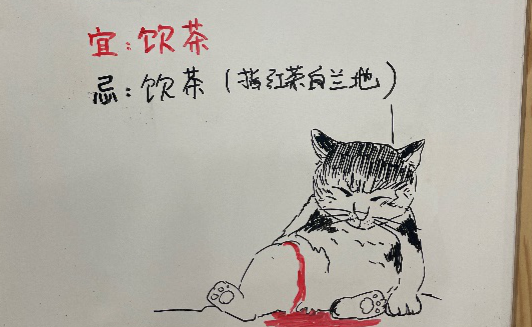 宜：饮茶
忌：饮茶（指红茶白兰地）